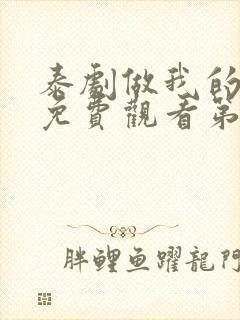 泰劇做我的
免費觀看第
胖鲤鱼躍龍門